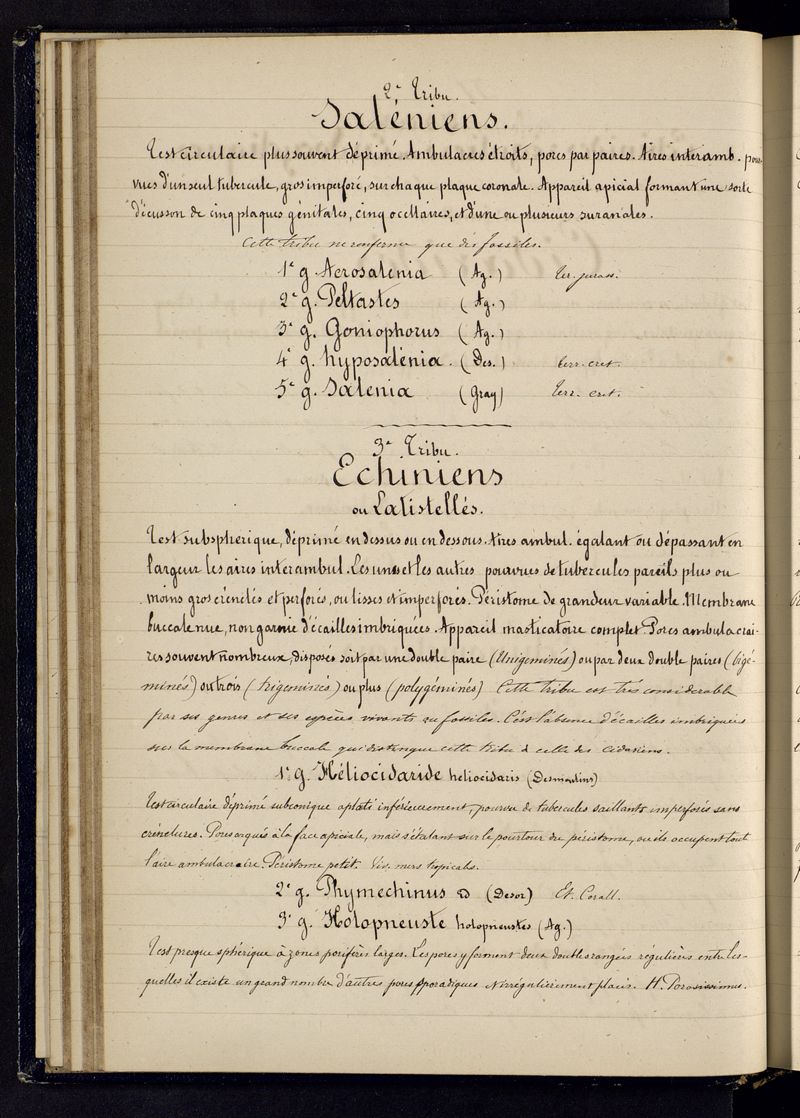 2e Tribu.
Saléniens.
Test circulaire plus souvent déprimé. Ambulacres étroits, pores par paires. Aires interamb. pour-
vues d'un seul tubercule, gros imperforé, sur chaque plaque coronale. Appareil apicial formant une sorte
d'écusson de cinq plaques génitales, cinq ocellaires, et d'une ou plusieurs suranales.
Cette tribu ne renferme que des fossiles.
1e g. Acrosalenia (Ag.) ter. jurass.
2e g. Peltastes (Ag.)
3e g. Goniophorus (Ag.)
4e g. hyposalenia. (Des.) terr. cret.
5e g. Salenia (Gray) Terr. cret.
3e Tribu.
Echiniens
ou Latistellés.
Test subspherique, déprimé en dessus ou en dessous. Aires ambul. égalant ou dépassant en
largeur les aires interambul. Les unes et les autres pourvues de tubercules pareils plus ou
moins gros crénelés et perforés, ou lisses et imperforés. Péristome de grandeur variable. Membrane
buccale nue, non garnie d'écailles imbriquées. Appareil masticatoire complet. Pores ambulacrai-
res souvent nombreux, disposés soit par une double paire (Unigeminés) ou par deux double paires (bigé-
minés) ou trois (trigeminés) ou plus (polygéminés) Cette tribu est très considerable
par ses genres et ses espèces vivants ou fossiles. C'est l'absence d'écailles imbriquées
sur la membrane buccale qui distingue cette tribu à celle des Cidariens.
1e g. Héliocidaride heliocidaris (Desmoulins)
Test circulaire déprimé subconique aplati inférieurement, pourvu de tubercules saillants imperforés sans
crénelures. Pores arqués à la face apiciale, mais s'étalant sur le pourtour du péristome, ou ils occupent tout
l'aire ambulacraire. Péristome petit. Viv. mers tropicales.
2e g. Phymechinus (Desor) Et. Corall.
3e g. Holopneuste holopneustes (Ag.)
Test presque sphérique à zones porifères larges. Les pores y forment deux doubles rangées régulières entre les-
quelles il existe un grand nombre d'autres pores sporadiques irrégulièrement placés. H. Porosissimus.